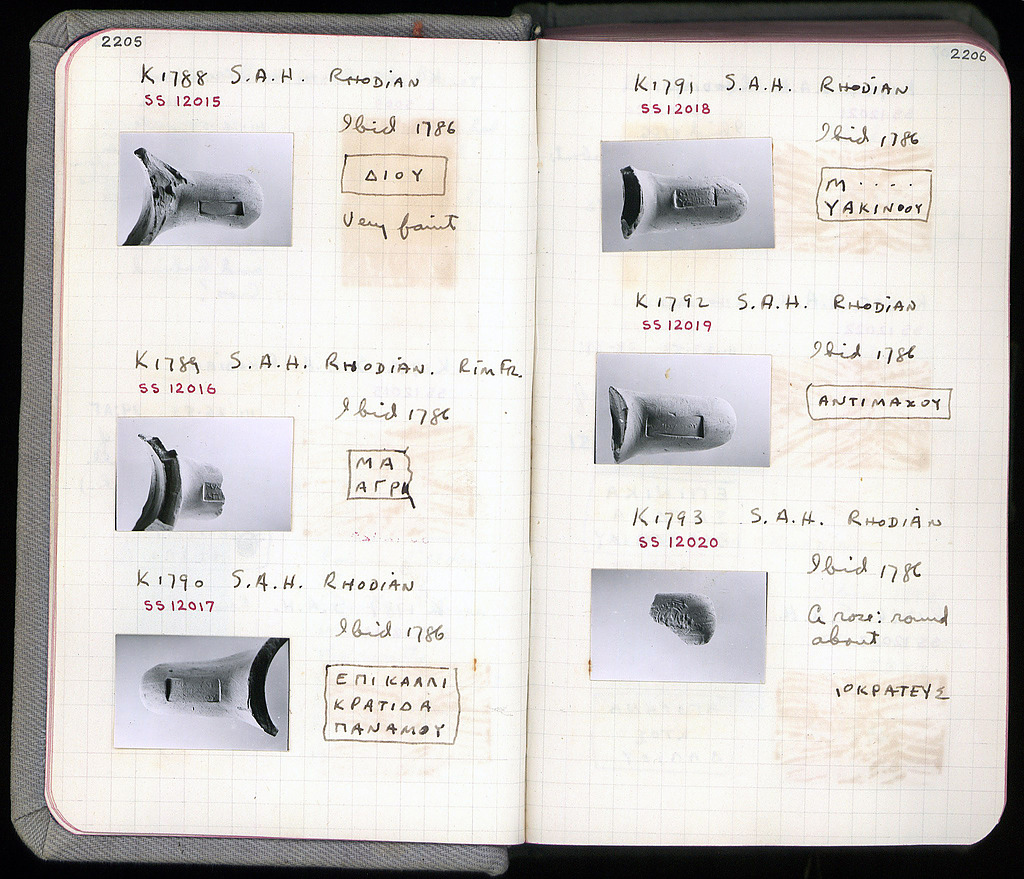 2205
K1788 S.A.H. RHODIAN
SS 12015
Ibid 1786
ΔΙΟΥ
Very faint
K1789 S.A.H. RHODIAN. RIM FR.
SS 12016
Ibid 1786
ΜΑ
ΑΓΡΙ
K1790 S.A.H. RHODIAN
SS 12017
Ibid 1786
ΕΠΙΚΑΛΛΙ
ΚΡΑΤΙΔΑ
ΠΑΝΑΜΟΥ
2206
K1791 S.A.H. RHODIAN
SS 12018
Ibid 1786
Μ . . . .
ΥΑΚΙΝΘΟΥ
K1792 S.A.H. RHODIAN
SS 12019
Ibid 1786
ΑΝΤΙΜΑΧΟΥ
K1793 S.A.H. RHODIAN
SS 12020
Ibid 1786
A rose: round
about
ΙΟΚΡΑΤΕΥΣ